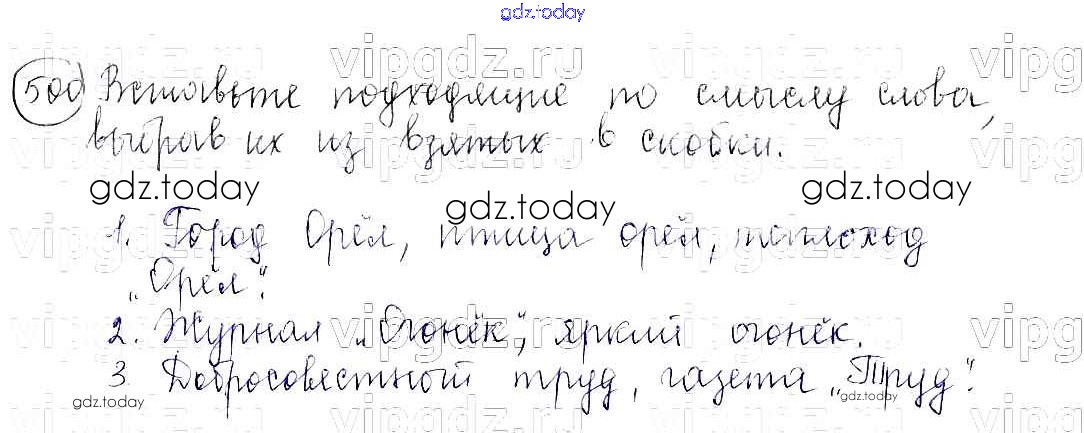 gdz.today
vipgdz.ru
500 Вставьте подходящие по смыслу слова,
выбрав их из взятых в скобки.
gdz.today gdz.today gdz.today
1. Город Орёл, птица орёл, теплоход
„Орёл".
2. Журнал „Огонёк", яркий огонёк.
3. Добросовестный труд, газета „Труд".
gdz.today gdz.today